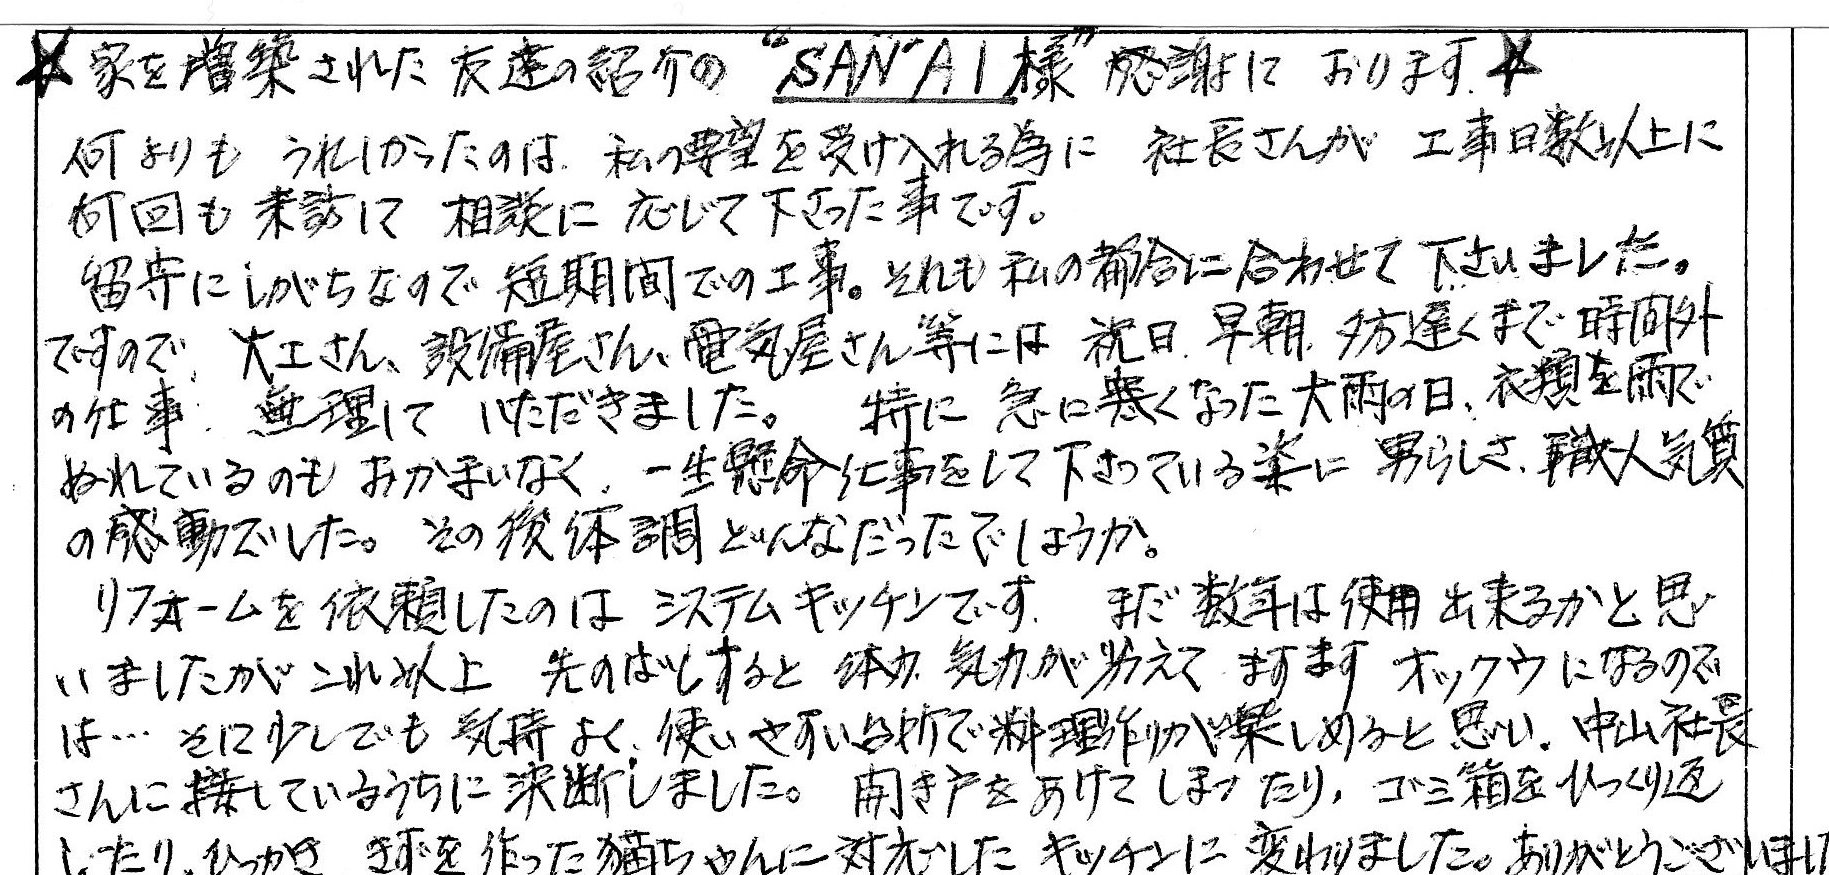 ★家を増築された友達の紹介の“SAN AI様”感謝に おります。★
何よりも うれしかったのは、私の要望を受け入れる為に 社長さんが 工事日数以上に
何回も来訪して 相談に 応じて下さった事です。
留守にしがちなので 短期間での工事。それも私の都合に合わせて下さいました。
ですので、大工さん、設備屋さん、電気屋さん等には 祝日、早朝、夕方遅くまで時間外
の仕事、無理して いただきました。 特に 急に寒くなった大雨の日、衣類を雨で
ぬれているのもおかまいなく、一生懸命仕事をして下さっている姿に 男らしさ、職人気質
の感動でした。その後体調どんなだったでしょうか。
リフォームを依頼したのは システムキッチンです。 まだ数年は使用出来るかと思
いましたが これ以上 先のばしすると 体力、気力が劣えて ますます オックウになるので
は… そに少しでも 気持よく、使いやすい台所で料理作りが楽しめると思い、中山社長
さんに接しているうちに決断しました。 開き戸をあけてしまったり、ゴミ箱をひっくり返
したり、ひっかき きずを作った猫ちゃんに対応した キッチンに 変わりました。ありがとうございまし